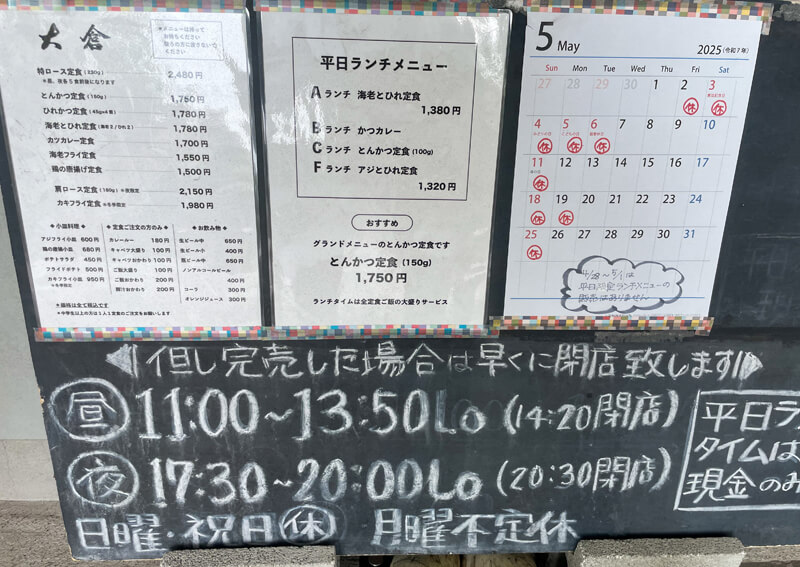 大倉
メニューは持って
お待ちください
特ロース定食(230g) 2,480円
とんかつ定食(150g) 1,750円
ひれかつ定食(45gx4個) 1,780円
海老とひれ定食(海老2/ひれ2) 1,780円
カツカレー定食 1,700円
海老フライ定食 1,550円
鶏の唐揚げ定食 1,500円
肩ロース定食(180g) ※夜限定 2,150円
カキフライ定食 ※冬季限定 1,980円
◆小皿料理◆
アジフライ小皿 600円
鶏の唐揚小皿 680円
ポテトサラダ 450円
フライドポテト 500円
カキフライ小皿 950円
※冬季限定
◆定食ご注文の方のみ◆
カレールー 180円
キャベツ大盛り 100円
キャベツおかわり 200円
ご飯大盛り 100円
ご飯おかわり 200円
豚汁おかわり 200円
◆お飲み物◆
生ビール中 650円
生ビール小 400円
瓶ビール中 650円
ノンアルコールビール
400円
コーラ 300円
オレンジジュース 300円
※価格は全て税込です
※中学生以上の方は1人1定食のご注文をお願いします
平日ランチメニュー
Aランチ 海老とひれ定食
1,380円
Bランチ かつカレー
Cランチ とんかつ定食(100g)
Fランチ アジとひれ定食
1,320円
おすすめ
グランドメニューのとんかつ定食です
とんかつ定食(150g)
1,750円
ランチタイムは全定食ご飯の大盛りサービス
5 May 2025(令和7年)
Sun Mon Tue Wed Thu Fri Sat
27 28 29 30 1 2 3
休 休
4 5 6 7 8 9 10
休 休 休
11 12 13 14 15 16 17
休
18 19 20 21 22 23 24
休 休
25 26 27 28 29 30 31
休
4/28〜5/1は
平日限定ランチメニューの
販売はありません
但し完売した場合は早くに閉店致します
昼 11:00~13:50Lo (14:20閉店)
夜 17:30~20:00Lo (20:30閉店)
日曜・祝日休 月曜不定休
平日ラ
タイムは
現金のみ